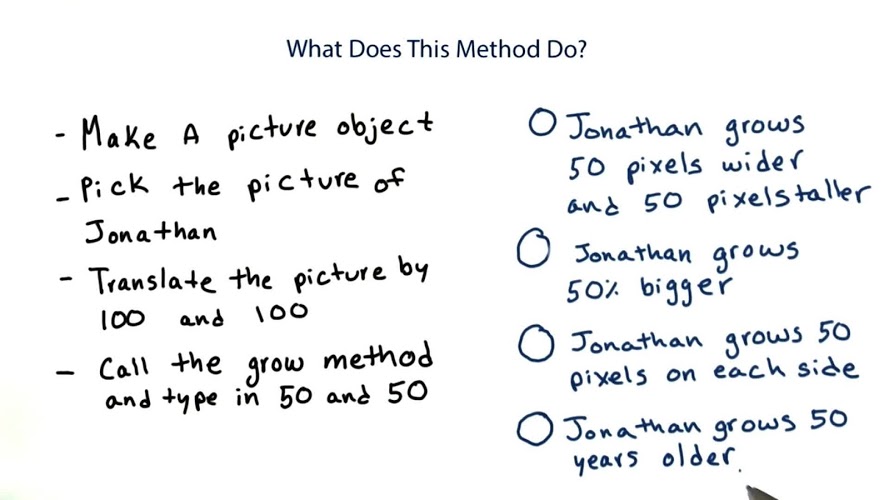 What Does This Method Do?
- Make A picture object
- Pick the picture of
Jonathan
- Translate the picture by
100 and 100
- Call the grow method
and type in 50 and 50
Jonathan grows
50 pixels wider
and 50 pixels taller
Jonathan grows
50% bigger
Jonathan grows 50
pixels on each side
Jonathan grows 50
years older.